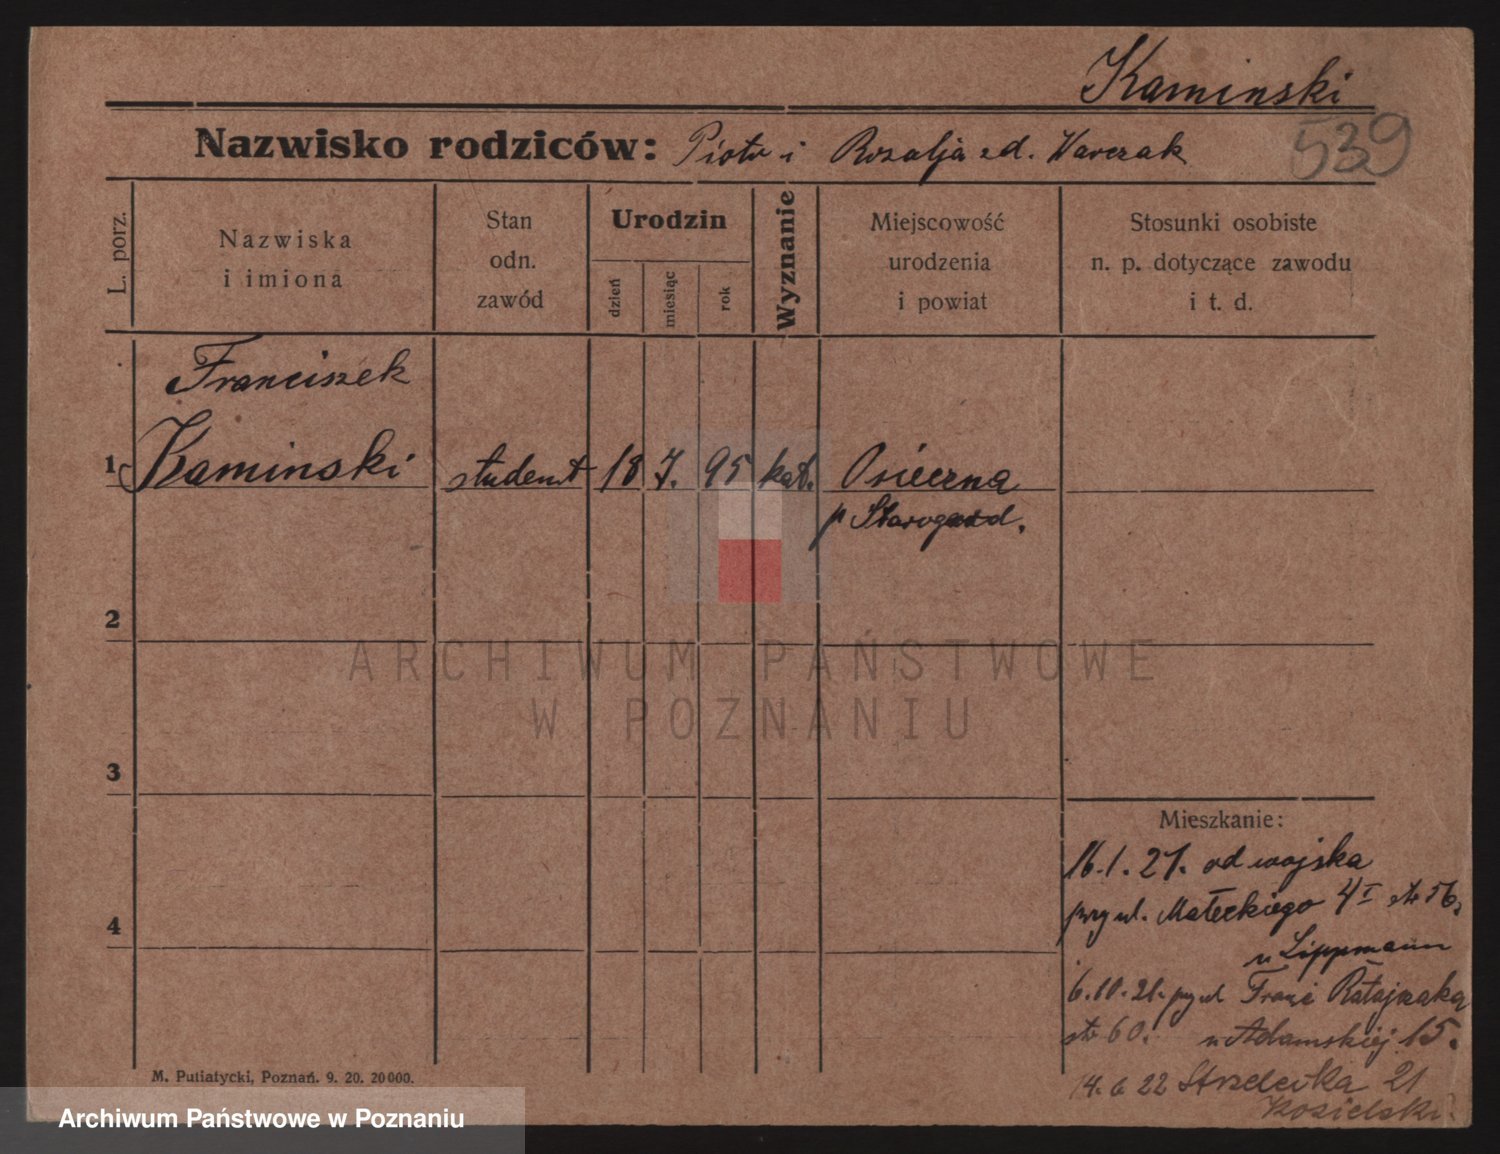 Kaminski
539
Nazwisko rodziców: Piotr i Rozalja zd. Warczak
L. porz.
Nazwiska
i imiona
Stan
odn.
zawód
Urodzin
dzień
miesiąc
rok
Wyznanie
Miejscowość
urodzenia
i powiat
Stosunki osobiste
n. p. dotyczące zawodu
i t. d.
Franciszek
1 Kaminski student 18 7. 95 kat. Osieczna
p Starogard.
2
3
4
Mieszkanie:
16.1.21. od wojska
przy ul. Małeckiego 4 I str 56,
u Lippmann
6.10.21. przy ul Franc Ratajczaka
str 60. u Adamskiej 15.
14.6 22 Strzelecka 21
Kosielski
M. Putiatycki, Poznań. 9. 20. 20000.
ARCHIWUM PAŃSTWOWE
W POZNANIU
Archiwum Państwowe w Poznaniu